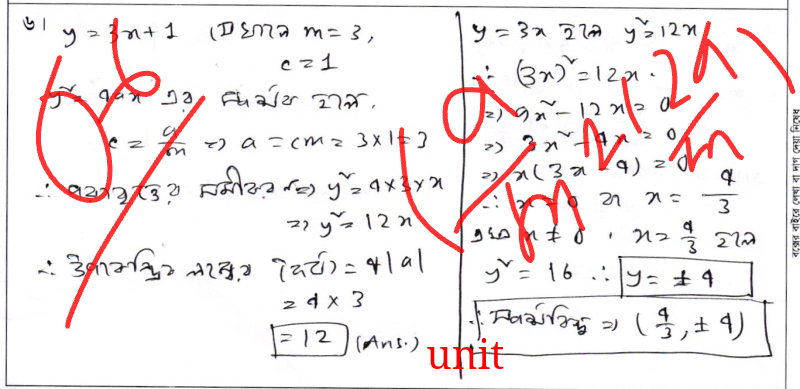 ৬। y = 3x + 1 এখানে m = 3,
c = 1
y² = 4ax এর স্পর্শক হলে,
c = a/m ⇒ a = cm = 3×1 = 3
∴ পরাবৃত্তের সমীকরণ ⇒ y² = 4×3×x
⇒ y² = 12x
∴ উপকেন্দ্রিক লম্বের দৈর্ঘ্য = 4|a|
= 4 × 3
= 12 (Ans.)
unit
y = 3x হলে y² = 12x
∴ (3x)² = 12x
⇒ 9x² - 12x = 0
⇒ 3x² - 4x = 0
⇒ x(3x - 4) = 0
∴ x = 0 বা x = 4/3
x ≠ 0, x = 4/3 হলে
y² = 16 ∴ y = ± 4
∴ স্পর্শবিন্দু ⇒ (4/3, ± 4)
(a/m², 2a/m)
বক্সের বাইরে লেখা বা দাগ দেয়া নিষেধ